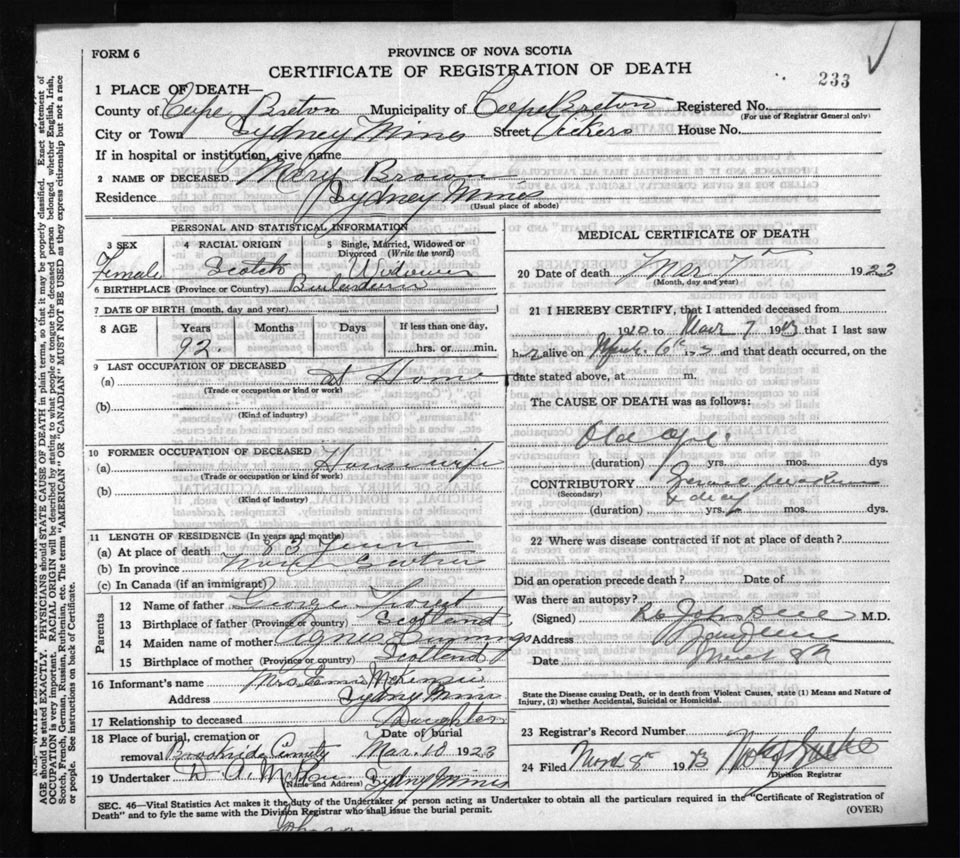 FORM 6
PROVINCE OF NOVA SCOTIA
CERTIFICATE OF REGISTRATION OF DEATH
233
1 PLACE OF DEATH—
County of Cape Breton Municipality of Cape Breton Registered No.
(For use of Registrar General only)
City or Town Sydney Mines Street Vickers House No.
If in hospital or institution, give name
2 NAME OF DECEASED Mary Brown
Residence Sydney Mines
(Usual place of abode)
PERSONAL AND STATISTICAL INFORMATION
3 SEX 4 RACIAL ORIGIN 5 Single, Married, Widowed or Divorced (Write the word)
Female Scotch Widow
6 BIRTHPLACE (Province or Country)
7 DATE OF BIRTH (month, day and year)
8 AGE Years Months Days If less than one day,
92 hrs. or min.
9 LAST OCCUPATION OF DECEASED
(a) at Home
(Trade or occupation or kind of work)
(b)
(Kind of industry)
10 FORMER OCCUPATION OF DECEASED
(a) Housewife
(Trade or occupation or kind of work)
(b)
(Kind of industry)
11 LENGTH OF RESIDENCE (In years and months)
(a) At place of death 83 Years
(b) In province Nova Scotia
(c) In Canada (if an immigrant)
Parents
12 Name of father George
13 Birthplace of father (Province or country) Scotland
14 Maiden name of mother Agnes Cummings
15 Birthplace of mother (Province or country) Scotland
16 Informant's name Mrs McKenzie
Address Sydney Mines
17 Relationship to deceased Daughter
18 Place of burial, cremation or removal Date of burial
Brookside Cemetery Mar. 10 1923
19 Undertaker D. A.
(Name and Address) Sydney Mines
MEDICAL CERTIFICATE OF DEATH
20 Date of death Mar 7 1923
(Month, day and year)
21 I HEREBY CERTIFY, that I attended deceased from
1920 to Mar 7 1923 that I last saw
h alive on March 6th and that death occurred, on the
date stated above, at m.
The CAUSE OF DEATH was as follows:
Old age
(duration) yrs. mos. dys
CONTRIBUTORY
(Secondary) & decay
(duration) yrs. mos. dys.
22 Where was disease contracted if not at place of death?
Did an operation precede death? Date of
Was there an autopsy?
(Signed) M.D.
Address
Date March 8th
State the Disease causing Death, or in death from Violent Causes, state (1) Means and Nature of
Injury, (2) whether Accidental, Suicidal or Homicidal.
23 Registrar's Record Number
24 Filed March 8th 1923
Division Registrar
SEC. 46—Vital Statistics Act makes it the duty of the Undertaker or person acting as Undertaker to obtain all the particulars required in the "Certificate of Registration of
Death" and to fyle the same with the Division Registrar who shall issue the burial permit.
(OVER)
AGE should be stated EXACTLY. PHYSICIANS should STATE CAUSE OF DEATH in plain terms, so that it may be properly classified. Exact statement of
OCCUPATION is very important. RACIAL ORIGIN will be described by stating to what people or tongue the deceased person belonged whether English, Irish,
Scotch, French, German, Russian, Ruthenian, etc. The terms "AMERICAN" OR "CANADIAN" MUST NOT BE USED as they express citizenship but not a race
or people. See instructions on back of Certificate.